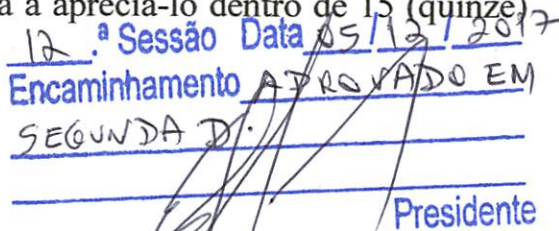 a a apreciá-lo dentro de 15 (quinze)
12.ª Sessão Data 05/12/2017
Encaminhamento APROVADO EM
SEGUNDA D.
Presidente